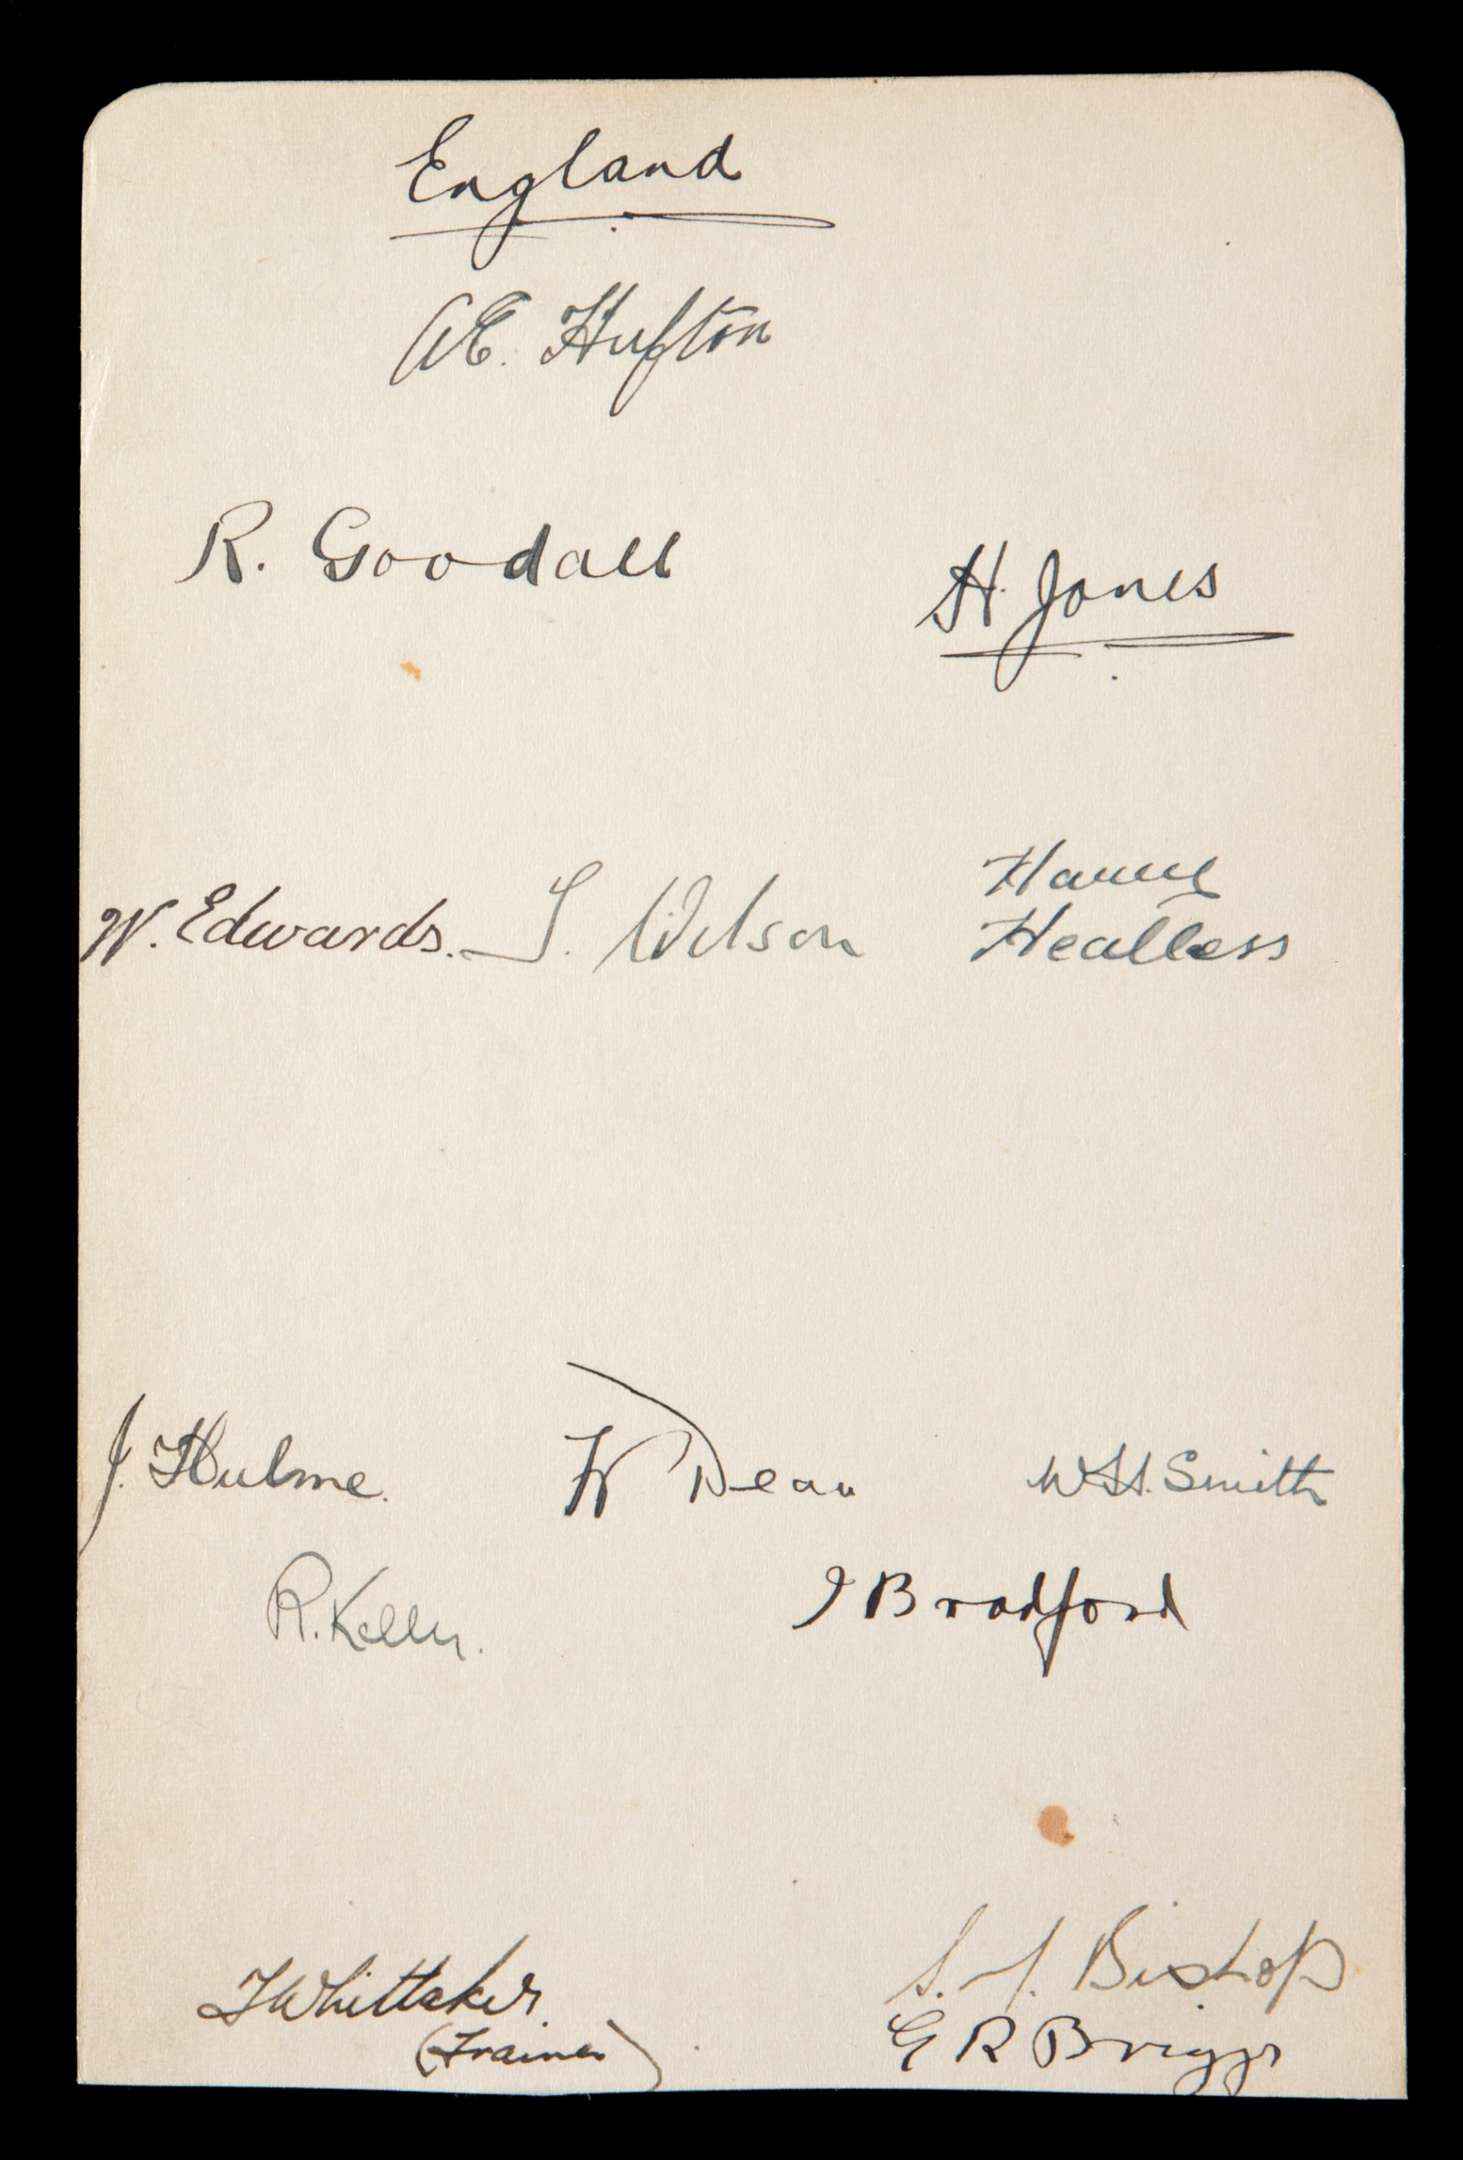 England
A E. Hufton
R. Goodall
H. Jones
W. Edwards.
T. Wilson
Harry
Healless
J. Hulme.
W Dean
W.H. Smith
R. Kelly.
J Bradford
T Whittaker
(Trainer)
S. J. Bishop
G R Briggs